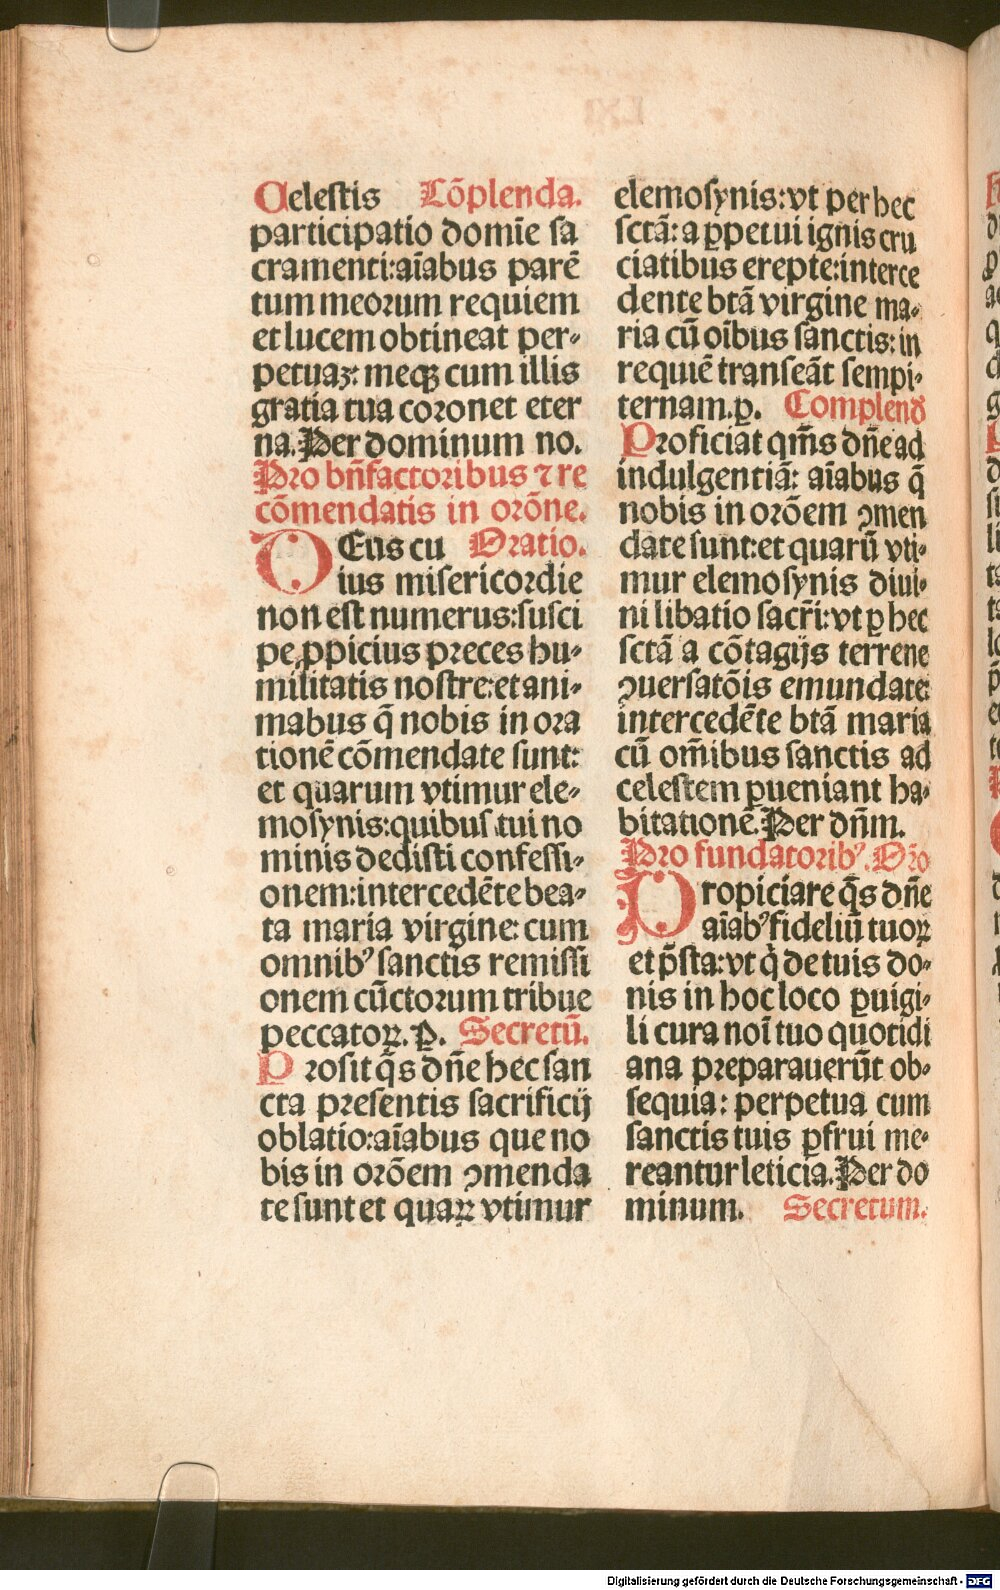 Celestis Cōplenda.
participatio domīe sa
cramenti:aīabus parē
tum meoꝛum requiem
et lucem obtineat per⸗
petuaꝫ: meqꝫ cum illis
gratia tua coꝛonet eter
na. Per dominum no.
Pꝛo bn̄factoꝛibus ⁊ re
cōmendatis in oꝛōne.
DEus cu Oꝛatio.
ius miſericoꝛdie
non est numerus:ſuſci
pe ꝓpicius pꝛeces hu⸗
militatis noſtre:et ani⸗
mabus q̄ nobis in oꝛa
tionē cōmendate ſunt:
et quarum vtimur ele⸗
moſynis:quibus tui no
minis dediſti confeſſi⸗
onem:intercedēte bea⸗
ta maria virgine: cum
omnibꝰ ſanctis remiſſi
onem cūctoꝛum tribue
peccatoꝝ. P. Secretū.
Pꝛoſit q̄s dn̄e hec ſan
cta pꝛeſentis ſacrificij
oblatio:aīabus que no
bis in oꝛōem ꝯmenda
te ſunt et quaꝝ vtimur
elemoſynis:vt per hec
ſctā: a ꝑpetui ignis cru
ciatibus erepte:interce
dente btā virgine ma⸗
ria cū oībus ſanctis: in
requiē tranſeāt ſempi⸗
ternam.ꝑ. Complend
Pꝛoficiat qm̄s dn̄e ad
indulgentiā: aīabus q̄
nobis in oꝛōem ꝯmen
date ſunt:et quarū vti⸗
mur elemoſynis diui⸗
ni libatio ſacr̄i:vt ꝑ hec
ſctā a cōtagijs terrene
ꝯuerſatōis emundate:
intercedēte btā maria
cū om̄ibus ſanctis ad
celeſtem ꝑueniant ha⸗
bitationē. Per dn̄m.
Pꝛo fundatoꝛibꝰ. Oꝛ̄o
PRopiciare q̄s dn̄e
aīabꝰ fideliū tuoꝝ
et p̄ſta:vt q̇ de tuis do⸗
nis in hoc loco ꝑuigi⸗
li cura noī tuo quotidi
ana pꝛeparauerūt ob⸗
ſequia: perpetua cum
ſanctis tuis ꝑfrui me⸗
reantur leticia. Per do
minum. Secretum.
Digitalisierung gefördert durch die Deutsche Forschungsgemeinschaft - DFG